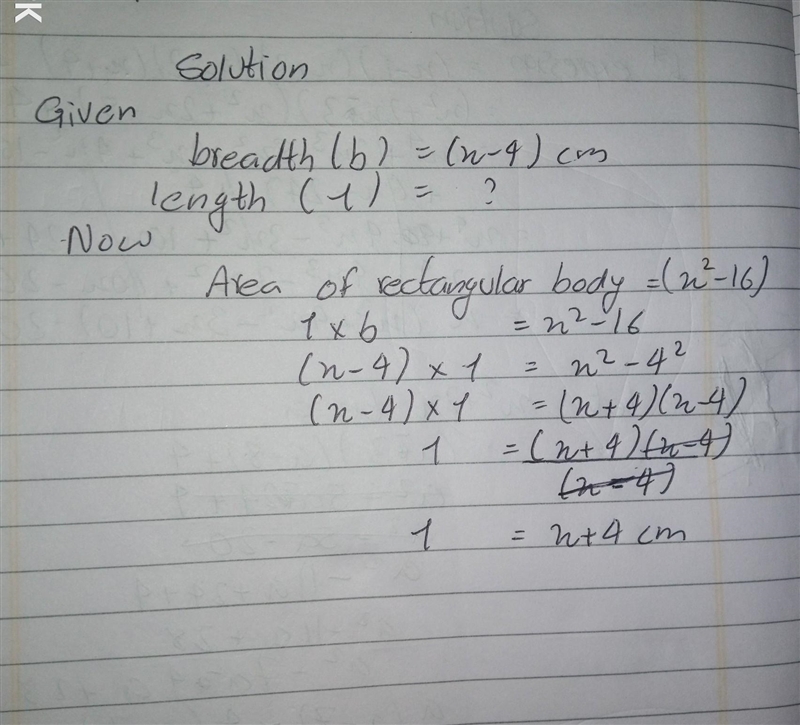 K
Solution
Given
breadth (b) = (n-4) cm
length (l) = ?
Now
Area of rectangular body = (n²-16)
l × b = n²-16
(n-4) × l = n² - 4²
(n-4) × l = (n+4)(n-4)
l = (n+4)(n-4)
(n-4)
l = n+4 cm